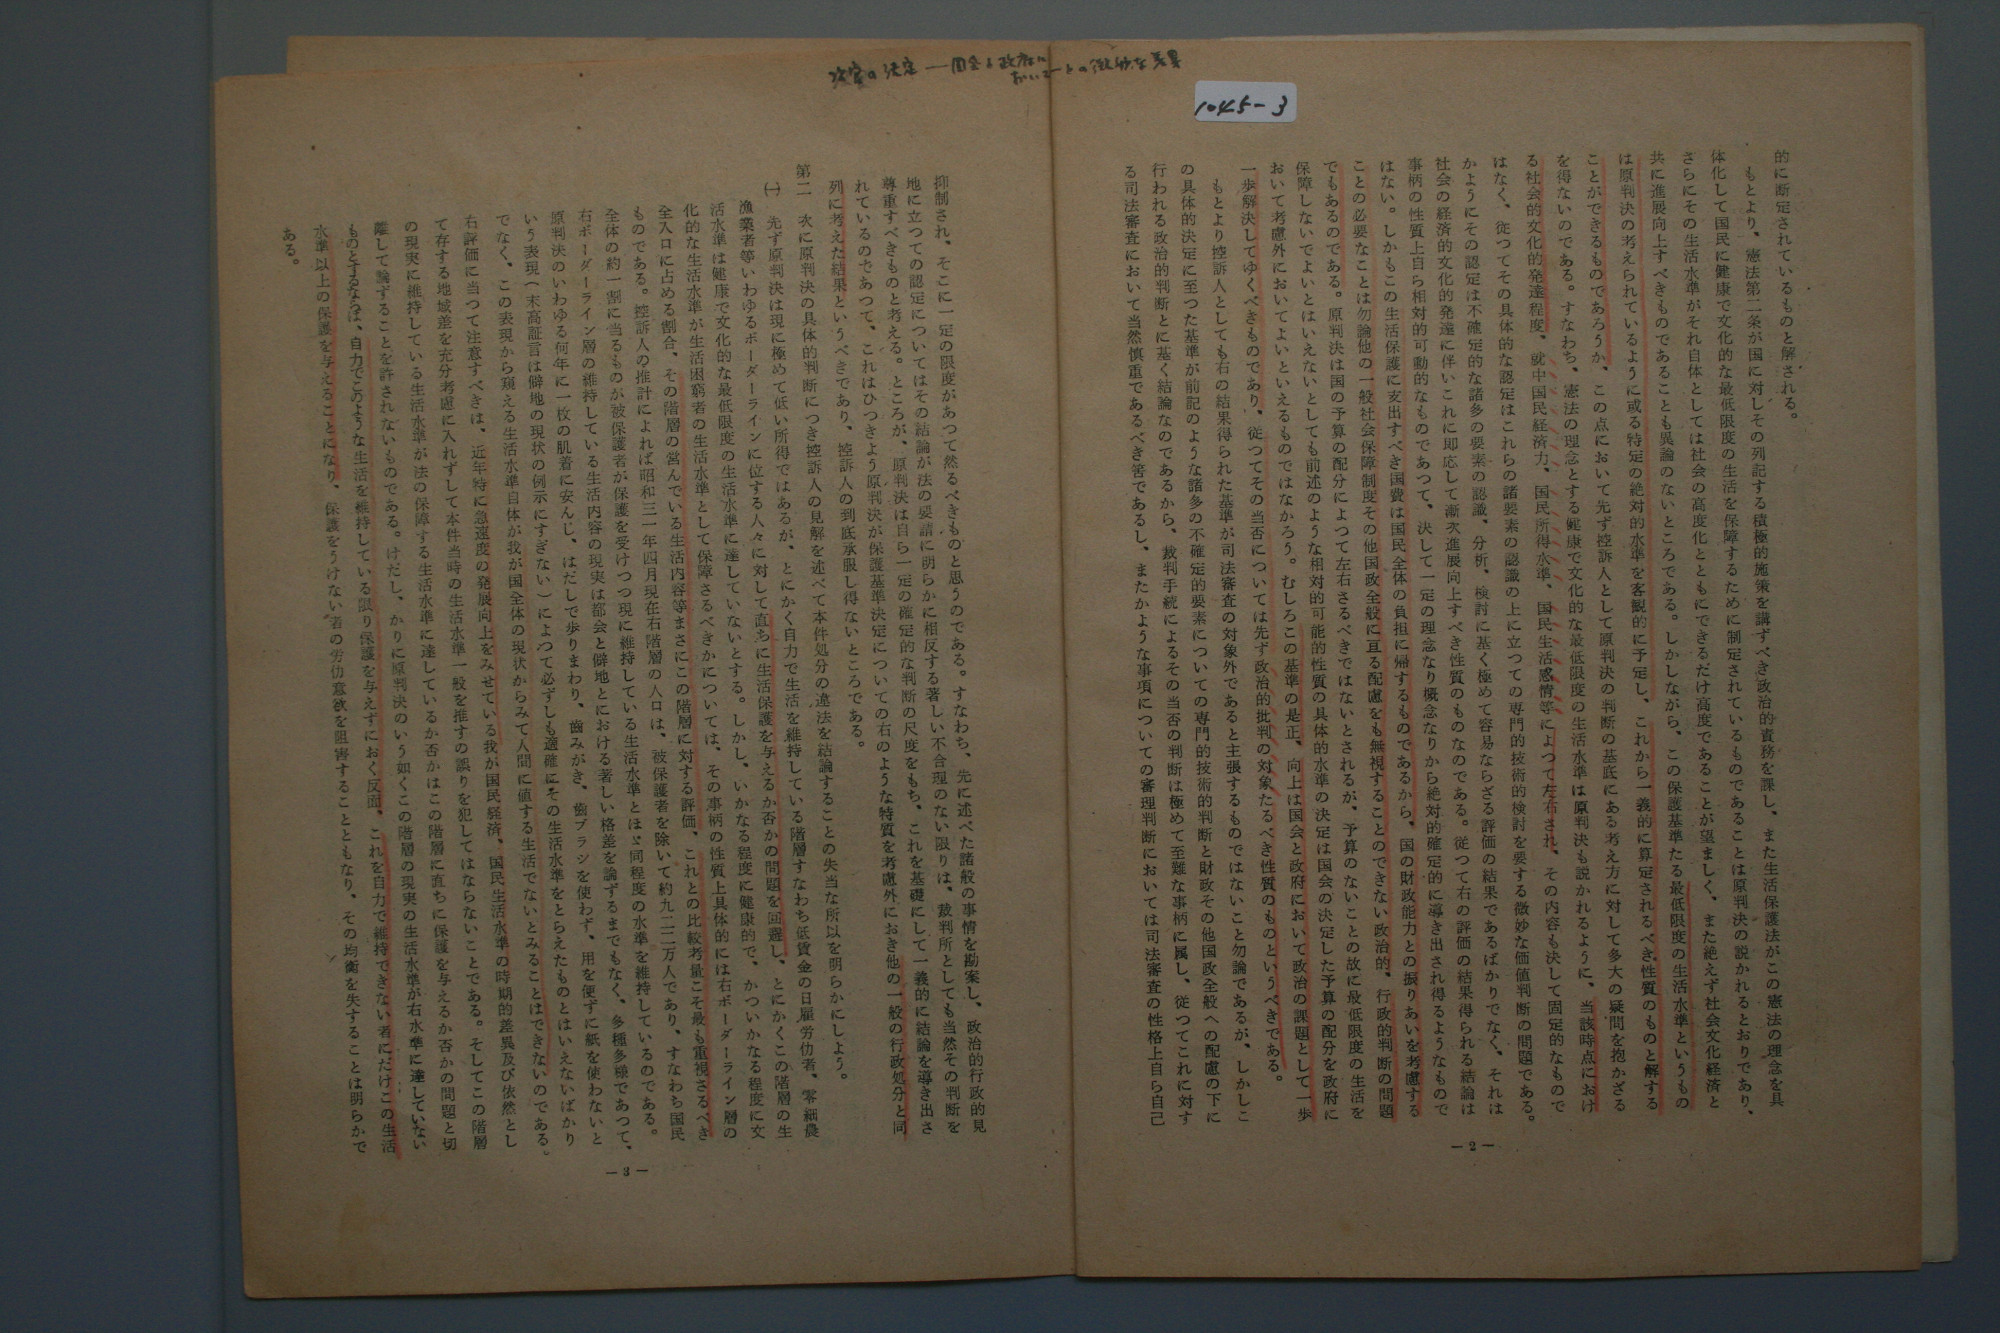 1045-3
的に断定されているものと解される。
もとより、憲法第二条が国に対しその列記する積極的施策を講ずべき政治的責務を課し、また生活保護法がこの憲法の理念を具
体化して国民に健康で文化的な最低限度の生活を保障するために制定されているものであることは原判決の説かれるとおりであり、
さらにその生活水準がそれ自体としては社会の高度化とともにできるだけ高度であることが望ましく、また絶えず社会文化経済と
共に進展向上すべきものであることも異論のないところである。しかしながら、この保護基準たる最低限度の生活水準というもの
は原判決の考えられているように或る特定の絶対的水準を客観的に予定し、これから一義的に算定されるべき性質のものと解する
ことができるものであろうか、この点において先ず控訴人として原判決の判断の基底にある考え方に対して多大の疑問を抱かざる
を得ないのである。すなわち、憲法の理念とする健康で文化的な最低限度の生活水準は原判決も説かれるように、当該時点におけ
る社会的文化的発達程度、就中国民経済力、国民所得水準、国民生活感情等によつて左右され、その内容も決して固定的なもので
はなく、従つてその具体的な認定はこれらの諸要素の認識の上に立つての専門的技術的検討を要する微妙な価値判断の問題である。
かようにその認定は不確定的な諸多の要素の認識、分析、検討に基く極めて容易ならざる評価の結果であるばかりでなく、それは
社会の経済的文化的発達に伴いこれに即応して漸次進展向上すべき性質のものなのである。従つて右の評価の結果得られる結論は
事柄の性質上自ら相対的可動的なものであつて、決して一定の理念なり概念なりから絶対的確定的に導き出され得るようなもので
はない。しかもこの生活保護に支出すべき国費は国民全体の負担に帰するものであるから、国の財政能力との振りあいを考慮する
ことの必要なことは勿論他の一般社会保障制度その他国政全般に亘る配慮をも無視することのできない政治的、行政的判断の問題
でもあるのである。原判決は国の予算の配分によつて左右さるべきではないとされるが、予算のないことの故に最低限度の生活を
保障しないでよいとはいえないとしても前述のような相対的可能的性質の具体的水準の決定は国会の決定した予算の配分を政府に
おいて考慮外においてよいといえるものではなかろう。むしろこの基準の是正、向上は国会と政府において政治の課題として一歩
一歩解決してゆくべきものであり、従つてその当否については先ず政治的批判の対象たるべき性質のものというべきである。
もとより控訴人としても右の結果得られた基準が司法審査の対象外であると主張するものではないこと勿論であるが、しかしこ
の具体的決定に至つた基準が前記のような諸多の不確定的要素についての専門的技術的判断と財政その他国政全般への配慮の下に
行われる政治的判断とに基く結論なのであるから、裁判手続によるその当否の判断は極めて至難な事柄に属し、従つてこれに対す
る司法審査において当然慎重であるべき筈であるし、またかような事項についての審理判断においては司法審査の性格上自ら自己
—2—
抑制され、そこに一定の限度があつて然るべきものと思うのである。すなわち、先に述べた諸般の事情を勘案し、政治的行政的見
地に立つての認定についてはその結論が法の要請に明らかに相反する著しい不合理のない限りは、裁判所としても当然その判断を
尊重すべきものと考える。ところが、原判決は自ら一定の確定的な判断の尺度をもち、これを基礎にして一義的に結論を導き出さ
れているのであつて、これはひつきよう原判決が保護基準決定についての右のような特質を考慮外におき他の一般の行政処分と同
列に考えた結果というべきであり、控訴人の到底承服し得ないところである。
第二 次に原判決の具体的判断につき控訴人の見解を述べて本件処分の違法を結論することの失当な所以を明らかにしよう。
㈠ 先ず原判決は現に極めて低い所得ではあるが、とにかく自力で生活を維持している階層すなわち低賃金の日雇労働者、零細農
漁業者等いわゆるボーダーラインに位する人々に対して直ちに生活保護を与えるか否かの問題を回避し、とにかくこの階層の生
活水準は健康で文化的な最低限度の生活水準に達していないとする。しかし、いかなる程度に健康的で、かついかなる程度に文
化的な生活水準が生活困窮者の生活水準として保障さるべきかについては、その事柄の性質上具体的には右ボーダーライン層の
全人口に占める割合、その階層の営んでいる生活内容等まさにこの階層に対する評価、これとの比較考量こそ最も重視さるべき
ものである。控訴人の推計によれば昭和三一年四月現在右階層の人口は、被保護者を除いて約九二二万人であり、すなわち国民
全体の約一割に当るものが被保護者が保護を受けつつ現に維持している生活水準とほゞ同程度の水準を維持しているのである。
右ボーダーライン層の維持している生活内容の現実は都会と僻地とにおける著しい格差を論ずるまでもなく、多種多様であつて、
原判決のいわゆる何年に一枚の肌着に安んじ、はだしで歩りまわり、歯みがき、歯ブラシを使わず、用を便ずに紙を使わないと
いう表現(末高証言は僻地の現状の例示にすぎない)によつて必ずしも適確にその生活水準をとらえたものとはいえないばかり
でなく、この表現から窺える生活水準自体が我が国全体の現状からみて人間に値する生活でないとみることはできないのである。
右評価に当つて注意すべきは、近年特に急速度の発展向上をみせている我が国民経済、国民生活水準の時期的差異及び依然とし
て存する地域差を充分考慮に入れずして本件当時の生活水準一般を推すの誤りを犯してはならないことである。そしてこの階層
の現実に維持している生活水準が法の保障する生活水準に達しているか否かはこの階層に直ちに保護を与えるか否かの問題と切
離して論ずることを許されないものである。けだし、かりに原判決のいう如くこの階層の現実の生活水準が右水準に達していない
ものとするならば、自力でこのような生活を維持している限り保護を与えずにおく反面、これを自力で維持できない者にだけこの生活
水準以上の保護を与えることになり、保護をうけない者の労働意欲を阻害することともなり、その均衡を失することは明らかで
ある。
—3—